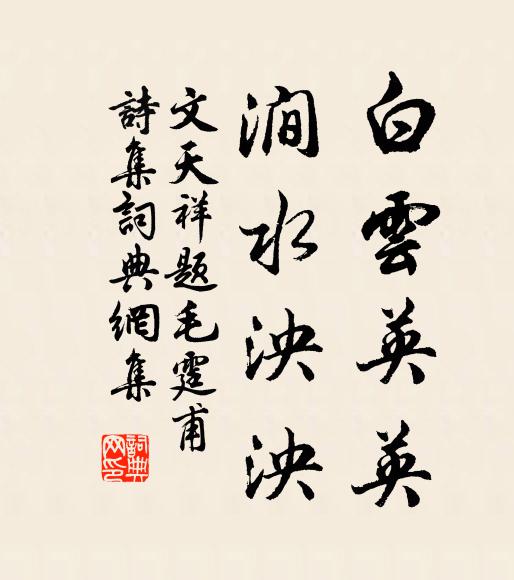 白雲英英
澗水泱泱
文天祥題毛霆甫
詩集詞典網集
詞典
网印